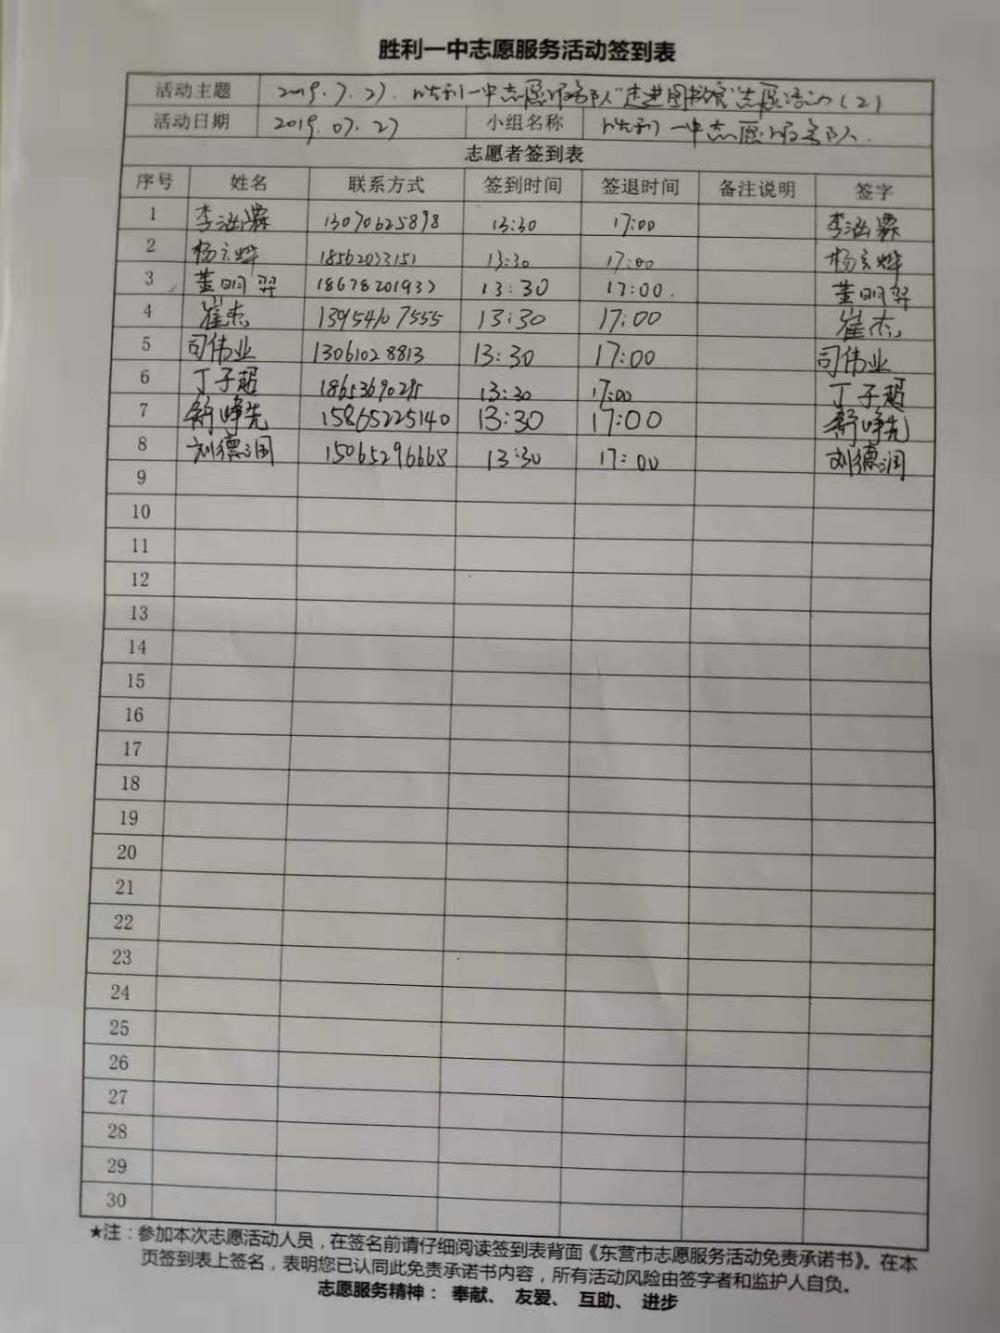 胜利一中志愿服务活动签到表
活动主题 2019.7.27. 胜利一中志愿服务队"走进图书馆"志愿活动(2)
活动日期 2019.07.27 小组名称 胜利一中志愿服务队.
志愿者签到表
序号 姓名 联系方式 签到时间 签退时间 备注说明 签字
1 李涵霖 13070625898 13:30 17:00 李涵霖
2 杨玄烨 18562033151 13:30 17:00 杨玄烨
3 董明羿 18678201937 13:30 17:00. 董明羿
4 崔杰 13954107555 13:30 17:00 崔杰
5 司伟业 13061028813 13:30 17:00 司伟业
6 丁子超 13:30 17:00 丁子超
7 舒峥先 15865225140 13:30 17:00 舒峥先
8 刘德润 15065296668 13:30 17:00 刘德润
9
10
11
12
13
14
15
16
17
18
19
20
21
22
23
24
25
26
27
28
29
30
★注：参加本次志愿活动人员，在签名前请仔细阅读签到表背面《东营市志愿服务活动免责承诺书》。在本
页签到表上签名，表明您已认同此免责承诺书内容，所有活动风险由签字者和监护人自负。
志愿服务精神： 奉献、 友爱、 互助、 进步